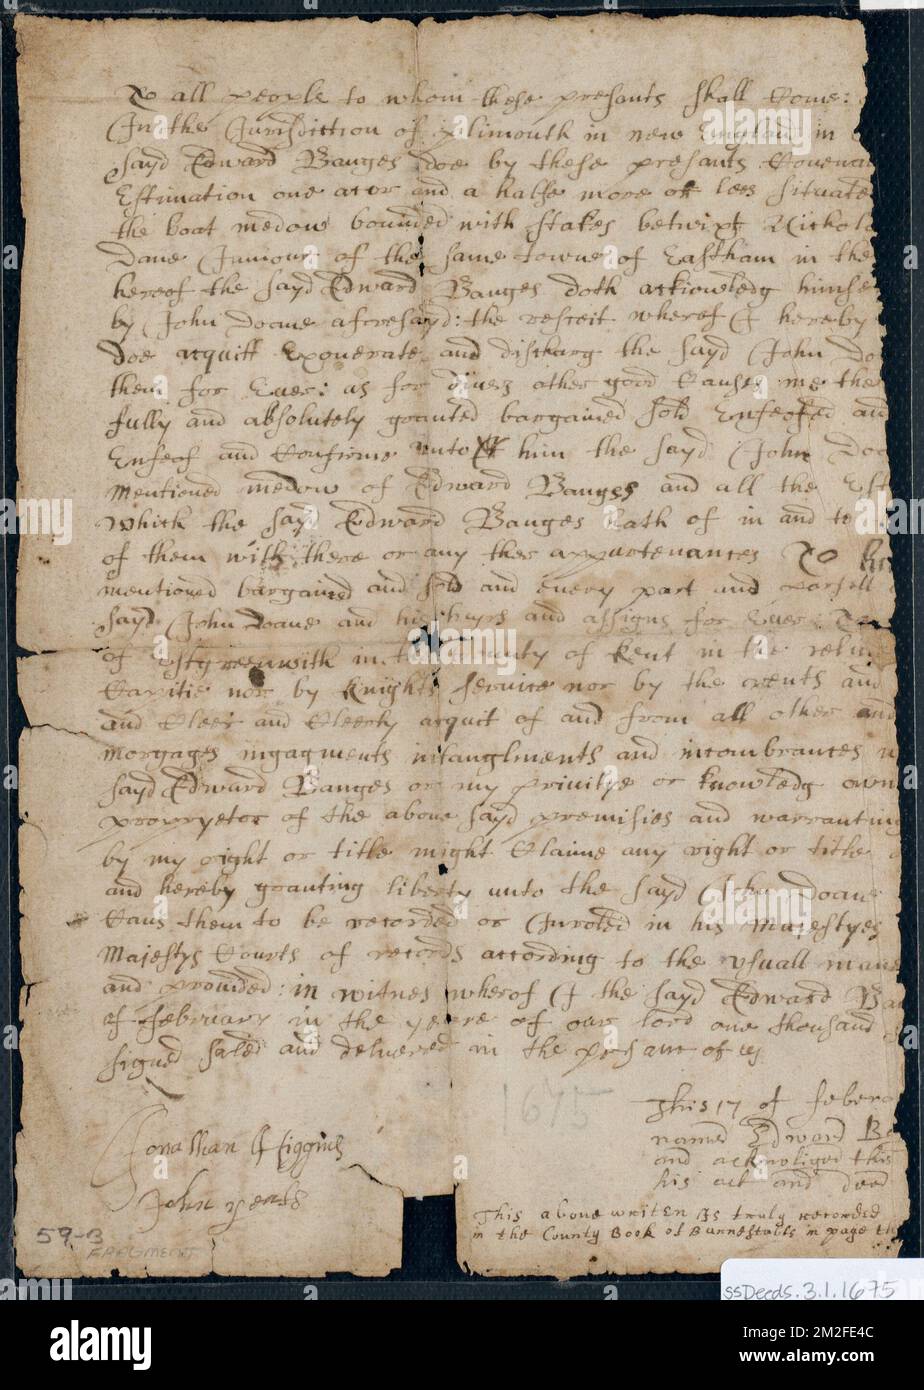 To all people to whom these presents shall Come:
In the Jurisdiction of plimouth in new England in
sayd Edward Banges doe by these presants Couenan
Estimation one acor and a halfe more or less situate
the boat medow bounded with stakes betwixt Nickola
Dane Juniour of the same towne of Eastham in the
hereof the sayd Edward Banges doth acknowledg himse
by John Doane afresayd: the reseit wherof I hereby
doe acquitt Exonerate and discharg the sayd John Do
them for Euer: as for diuers other good Causes me the
fully and absolutely granted bargained sold Enfeofed and
Enfeof and Confirme unto him the sayd John Doa
mentioned medow of Edward Banges and all the Est
which the sayd Edward Banges hath of in and to
of them with there or any ther appurtenances To ha
mentioned bargained and sold and euery part and parsell
sayd John Doane and his heyrs and assigns for Euer: To
of Estgreenwith in the County of Kent in the
Capitie nor by Knights service nor by the rents and
and Cleer and Cleerly acquit of and from all other and
morgages ingagments intanglments and incombrances
sayd Edward Banges or my priuitye or knowledg own
propryetor of the aboue sayd premisies and warranting
by my right or title might Claime any right or title
and hereby granting liberty unto the sayd John Doane
Caus them to be recorded or Inroled in his Majestyes
Majestys Courts of records according to the usuall mane
and prouided: in witnes wherof I the sayd Edward Ba
of february in the yeere of our lord one thousand
signed saled and deliuered in the presanc of us
1675
This 17 of febera
named Edword B
and acknoliged this
his act and deed
Jonathan Higgins
John
This aboue writen is truly recorded
in the County Book of Barnestable in page th
59-B
FRAGMENT
ssDeeds.3.1.1675
alamy
Image ID: 2M2FE4C
www.alamy.com